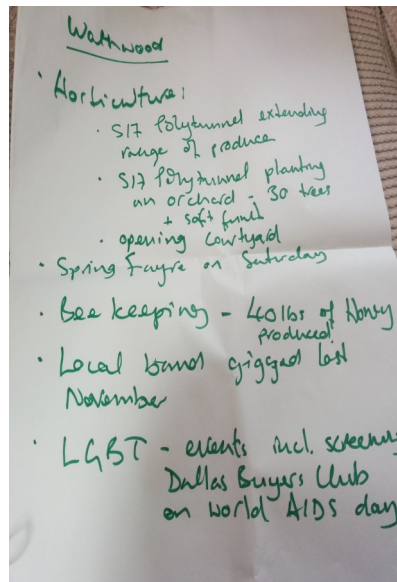 Wathwood
· Horticulture:
· S17 Polytunnel extending
range of produce
· S17 Polytunnel planting
an orchard - 30 trees
+ soft fruit
· opening courtyard
· Spring Fayre on Saturday
· Bee keeping - 40lbs of Honey
produced
· Local band gigged last
November
· LGBT - events incl. screening
Dallas Buyers Club
on world AIDS day